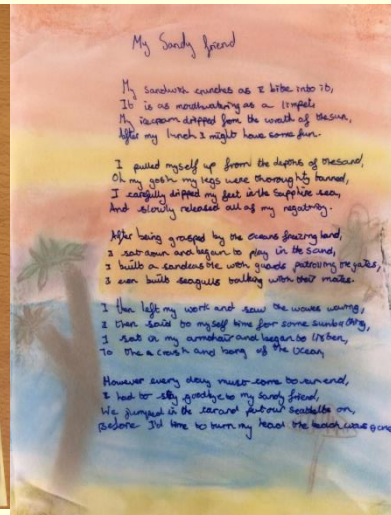 My Sandy friend
My sandwich crunches as I bite into it,
It is as mouthwatering as a limpet
My icecream dripped from the wrath of the sun,
After my lunch I might have some fun.
I pulled myself up from the depths of the sand,
Oh my gosh my legs were thoroughly tanned,
I carefully dipped my feet in the Sapphire sea,
And slowly released all of my negativity.
After being grasped by the oceans freezing hand,
I sat down and began to play in the sand,
I built a sandcastle with guards patrolling the gates,
I even built seagulls talking with their mates.
I then left my work and saw the waves waving,
I then said to myself time for some sunbathing,
I sat in my armchair and began to listen,
To the crash and bang of the Ocean
However every day must come to an end,
I had to say goodbye to my sandy friend,
We jumped in the car and put our seatbelts on,
Before I'd time to turn my head the beach was gone